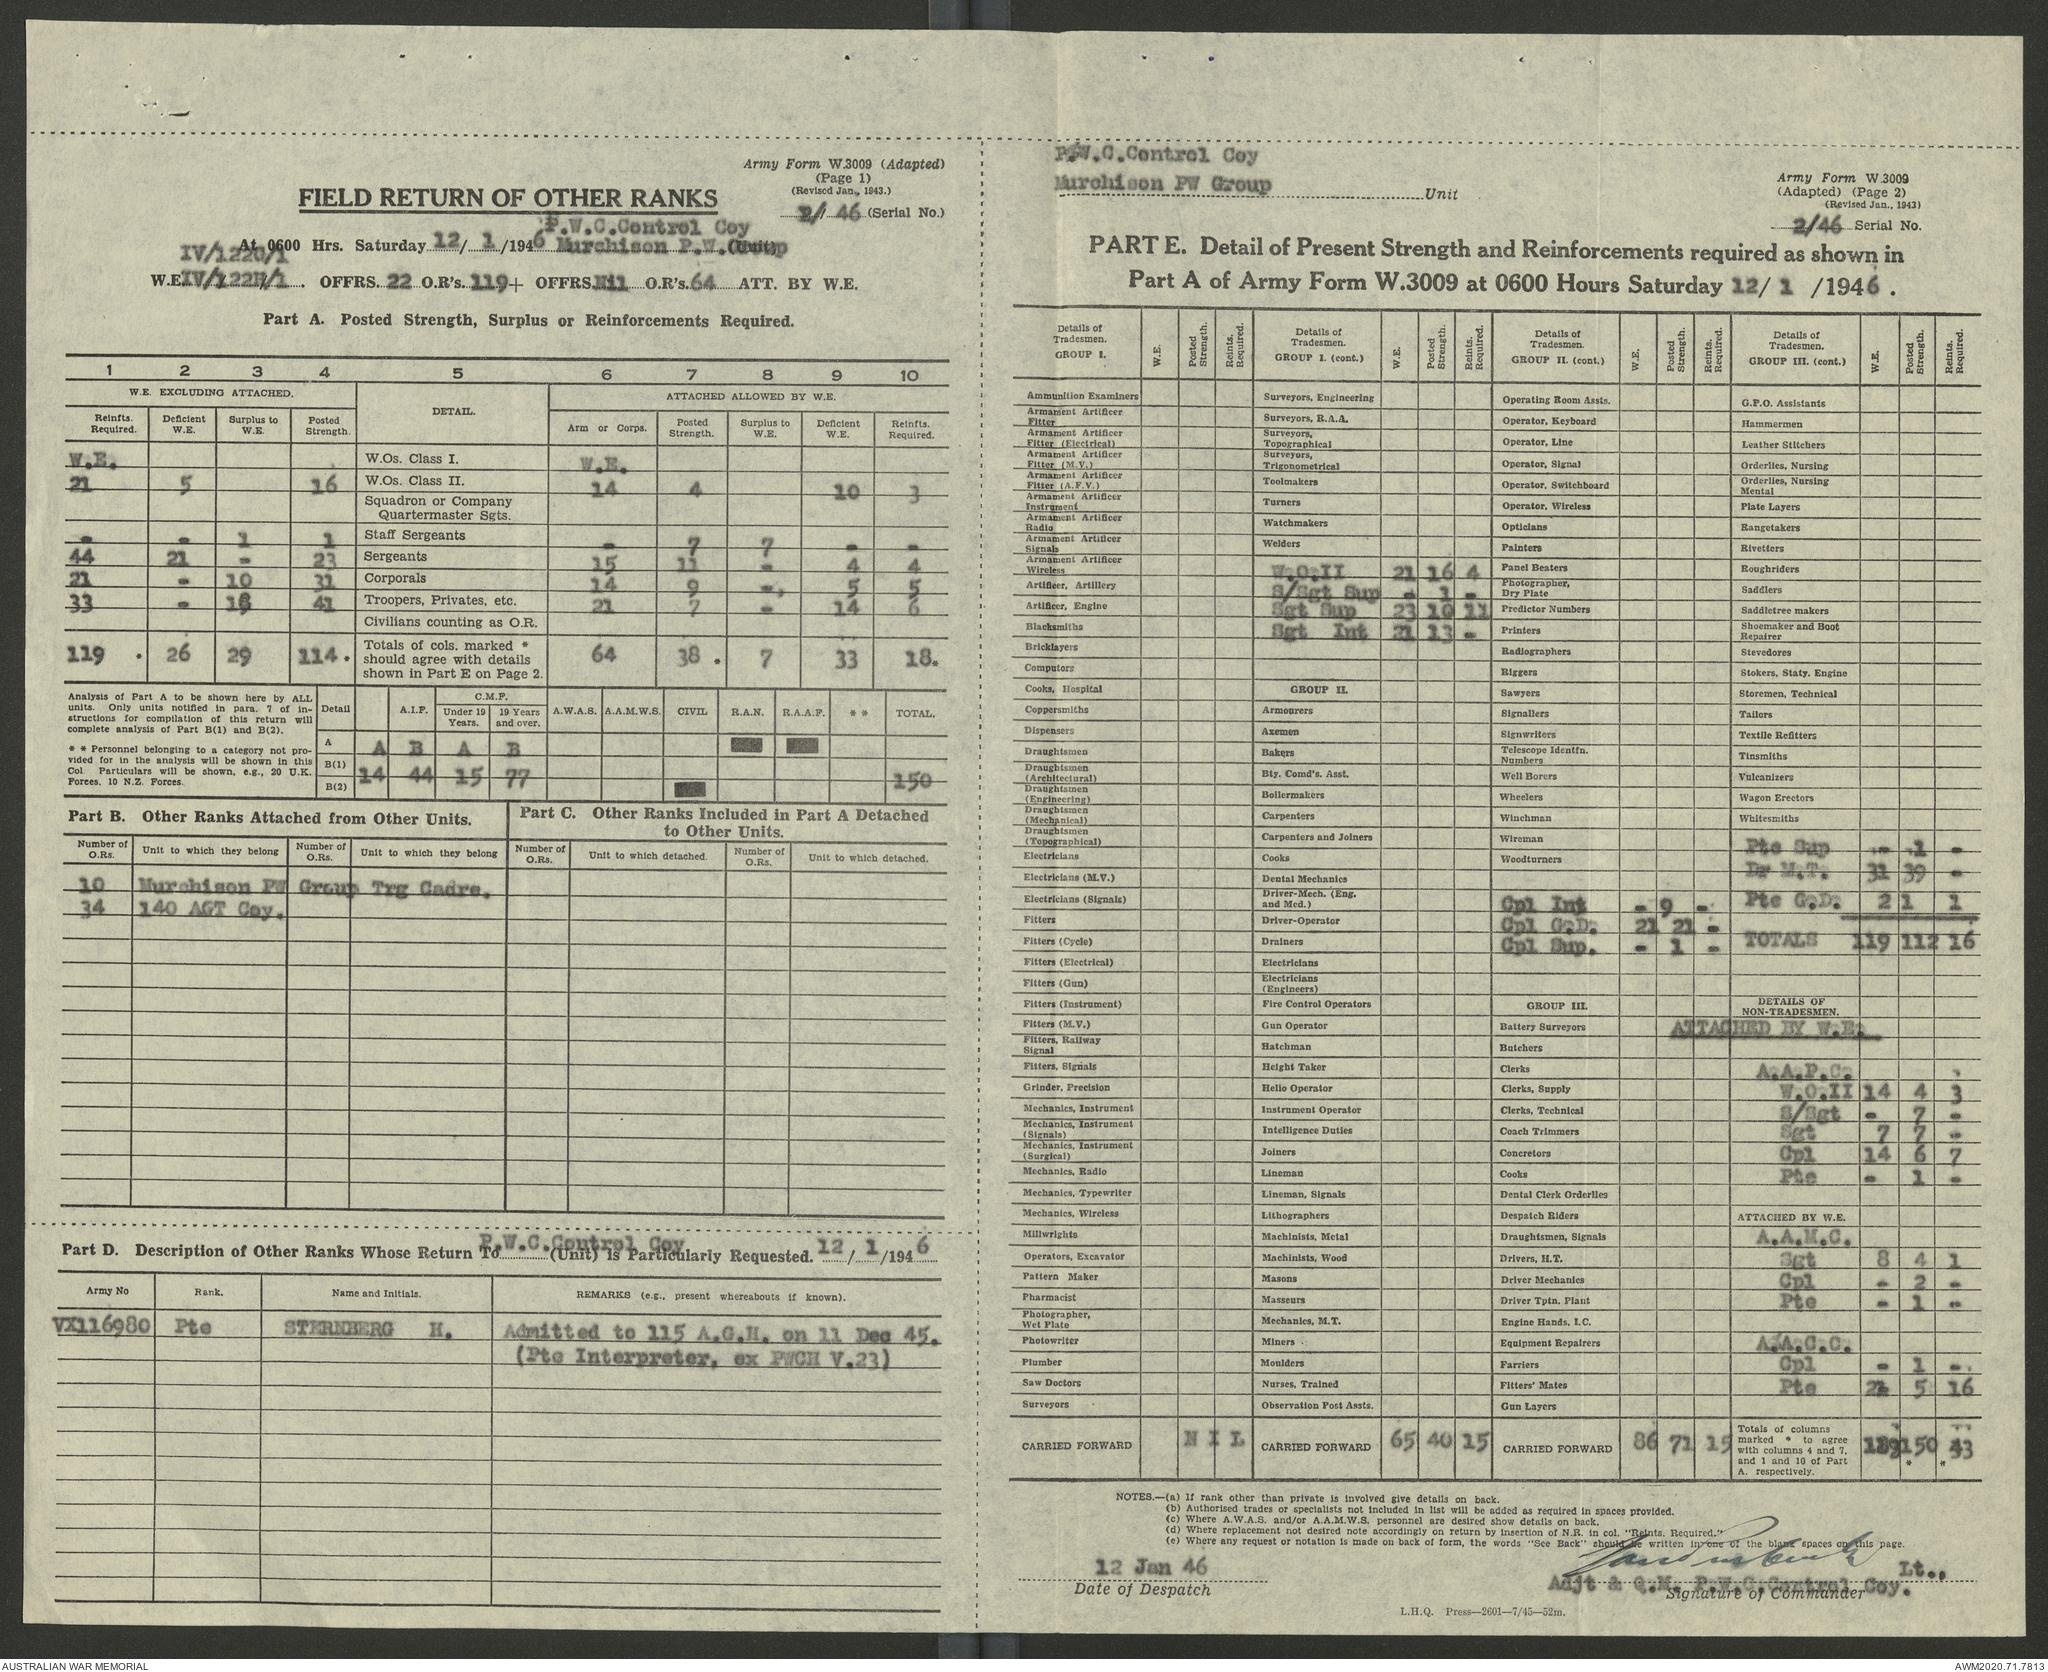 Army Form W.3009 (Adapted)
(Page 1)
(Revised Jan., 1943.)
FIELD RETURN OF OTHER RANKS
2/ 46 (Serial No.)
P.W.C.Control Coy
At 0600 Hrs. Saturday 12/ 1 /1946 Murchison P.W. Group (Unit)
IV/122G/1
W.E. IV/122H/1 . OFFRS. 22 O.R's. 119 + OFFRS. Nil O.R's. 64 ATT. BY W.E.
Part A. Posted Strength, Surplus or Reinforcements Required.
1 2 3 4 5 6 7 8 9 10
W.E. EXCLUDING ATTACHED. DETAIL. ATTACHED ALLOWED BY W.E.
Reinfts. Required. Deficient W.E. Surplus to W.E. Posted Strength. Arm or Corps. Posted Strength. Surplus to W.E. Deficient W.E. Reinfts. Required.
W.E. W.Os. Class I. W.E.
21 5 16 W.Os. Class II. 14 4 10 3
Squadron or Company
Quartermaster Sgts.
- - 1 1 Staff Sergeants - 7 7 - -
44 21 - 23 Sergeants 15 11 4 4
21 - 10 31 Corporals 14 9 - 5 5
33 - 18 41 Troopers, Privates, etc. 21 7 - 14 6
Civilians counting as O.R.
119 . 26 29 114 . Totals of cols. marked * should agree with details shown in Part E on Page 2. 64 38 . 7 33 18.
Analysis of Part A to be shown here by ALL
units. Only units notified in para. 7 of in-
structions for compilation of this return will
complete analysis of Part B(1) and B(2).
* * Personnel belonging to a category not pro-
vided for in the analysis will be shown in this
Col. Particulars will be shown, e.g., 20 U.K.
Forces. 10 N.Z. Forces.
Detail A.I.F. C.M.F. Under 19 Years. 19 Years and over. A.W.A.S. A.A.M.W.S. CIVIL R.A.N. R.A.A.F. * * TOTAL.
A A B A B
B(1)
14 44 15 77 150
B(2)
Part B. Other Ranks Attached from Other Units.
Part C. Other Ranks Included in Part A Detached
to Other Units.
Number of O.Rs. Unit to which they belong Number of O.Rs. Unit to which they belong Number of O.Rs. Unit to which detached. Number of O.Rs. Unit to which detached.
10 Murchison PW Group Trg Cadre.
34 140 AGT Coy.
Part D. Description of Other Ranks Whose Return To P.W.C.Control Coy (Unit) is Particularly Requested. 12 / 1 /194 6
Army No Rank. Name and Initials. REMARKS (e.g., present whereabouts if known).
VX116980 Pte STERNBERG H. Admitted to 115 A.G.H. on 11 Dec 45.
(Pte Interpreter, ex PWCH V.23)
P.W.C.Control Coy
Murchison PW Group Unit
Army Form W.3009
(Adapted) (Page 2)
(Revised Jan., 1943)
2/46 Serial No.
PART E. Detail of Present Strength and Reinforcements required as shown in
Part A of Army Form W.3009 at 0600 Hours Saturday 12/ 1 /1946 .
Details of Tradesmen. GROUP I. W.E. Posted Strength. Reints. Required.
Ammunition Examiners
Armament Artificer Fitter
Armament Artificer Fitter (Electrical)
Armament Artificer Fitter (M.V.)
Armament Artificer Fitter (A.F.V.)
Armament Artificer Instrument
Armament Artificer Radio
Armament Artificer Signals
Armament Artificer Wireless
Artificer, Artillery
Artificer, Engine
Blacksmiths
Bricklayers
Computors
Cooks, Hospital
Coppersmiths
Dispensers
Draughtsmen
Draughtsmen (Architectural)
Draughtsmen (Engineering)
Draughtsmen (Mechanical)
Draughtsmen (Topographical)
Electricians
Electricians (M.V.)
Electricians (Signals)
Fitters
Fitters (Cycle)
Fitters (Electrical)
Fitters (Gun)
Fitters (Instrument)
Fitters (M.V.)
Fitters, Railway Signal
Fitters, Signals
Grinder, Precision
Mechanics, Instrument
Mechanics, Instrument (Signals)
Mechanics, Instrument (Surgical)
Mechanics, Radio
Mechanics, Typewriter
Mechanics, Wireless
Millwrights
Operators, Excavator
Pattern Maker
Pharmacist
Photographer, Wet Plate
Photowriter
Plumber
Saw Doctors
Surveyors
CARRIED FORWARD N I L
Details of Tradesmen. GROUP I. (cont.) W.E. Posted Strength. Reints. Required.
Surveyors, Engineering
Surveyors, R.A.A.
Surveyors, Topographical
Surveyors, Trigonometrical
Toolmakers
Turners
Watchmakers
Welders
W.O.II 21 16 4
S/Sgt Sup - 1 -
Sgt Sup 23 10 11
Sgt Int 21 13 -
GROUP II.
Armourers
Axemen
Bakers
Bty. Comd's. Asst.
Boilermakers
Carpenters
Carpenters and Joiners
Cooks
Dental Mechanics
Driver-Mech. (Eng. and Mcd.)
Driver-Operator
Drainers
Electricians
Electricians (Engineers)
Fire Control Operators
Gun Operator
Hatchman
Height Taker
Helio Operator
Instrument Operator
Intelligence Duties
Joiners
Lineman
Lineman, Signals
Lithographers
Machinists, Metal
Machinists, Wood
Masons
Masseurs
Mechanics, M.T.
Miners
Moulders
Nurses, Trained
Observation Post Assts.
CARRIED FORWARD 65 40 15
Details of Tradesmen. GROUP II. (cont.) W.E. Posted Strength. Reints. Required.
Operating Room Assts.
Operator, Keyboard
Operator, Line
Operator, Signal
Operator, Switchboard
Operator, Wireless
Opticians
Painters
Panel Beaters
Photographer, Dry Plate
Predictor Numbers
Printers
Radiographers
Riggers
Sawyers
Signallers
Signwriters
Telescope Identfn. Numbers
Well Borers
Wheelers
Winchman
Wireman
Woodturners
Cpl Int - 9 -
Cpl G.D. 21 21 -
Cpl Sup. - 1 -
GROUP III.
Battery Surveyors
Butchers
Clerks
Clerks, Supply
Clerks, Technical
Coach Trimmers
Concretors
Cooks
Dental Clerk Orderlies
Despatch Riders
Draughtsmen, Signals
Drivers, H.T.
Driver Mechanics
Driver Tptn. Plant
Engine Hands, I.C.
Equipment Repairers
Farriers
Fitters' Mates
Gun Layers
CARRIED FORWARD 86 71 15
Details of Tradesmen. GROUP III. (cont.) W.E. Posted Strength. Reints. Required.
G.P.O. Assistants
Hammermen
Leather Stitchers
Orderlies, Nursing
Orderlies, Nursing Mental
Plate Layers
Rangetakers
Rivetters
Roughriders
Saddlers
Saddletree makers
Shoemaker and Boot Repairer
Stevedores
Stokers, Staty. Engine
Storemen, Technical
Tailors
Textile Refitters
Tinsmiths
Vulcanizers
Wagon Erectors
Whitesmiths
Pte Sup - 1 -
Dr M.T. 31 39 -
Pte G.D. 2 1 1
TOTALS 119 112 16
DETAILS OF NON-TRADESMEN.
ATTACHED BY W.E.
A.A.P.C.
W.O.II 14 4 3
S/Sgt - 7 -
Sgt 7 7 -
Cpl 14 6 7
Pte - 1 -
ATTACHED BY W.E.
A.A.M.C.
Sgt 8 4 1
Cpl - 2 -
Pte - 1 -
A.A.C.C.
Cpl - 1 -
Pte 5 16
Totals of columns marked * to agree with columns 4 and 7, and 1 and 10 of Part A. respectively. 150 * *
NOTES.—(a) If rank other than private is involved give details on back.
(b) Authorised trades or specialists not included in list will be added as required in spaces provided.
(c) Where A.W.A.S. and/or A.A.M.W.S. personnel are desired show details on back.
(d) Where replacement not desired note accordingly on return by insertion of N.R. in col. "Reints. Required."
(e) Where any request or notation is made on back of form, the words "See Back" should be written in one of the blank spaces on this page.
12 Jan 46
Date of Despatch
Lt.,
Adjt & Q.M. P.W.C.Control Coy.
Signature of Commander
L.H.Q. Press—2601—7/45—52m.
AUSTRALIAN WAR MEMORIAL
AWM2020.71.7813